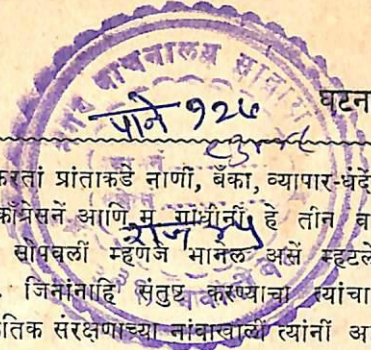 वाचनालय सातारा
घटन
पाने १२५
करतां प्रांताकडे नाणीं, बँका, व्यापार-धंदे
काँग्रेसनें आणि म. गांधींनीं हे तीन
सोपवलीं म्हणजे भागेल असें म्हटले
जिनांनाहि संतुष्ट करण्याचा त्यांचा
तिक संरक्षणाच्या नांवाखालीं त्यांनीं अ